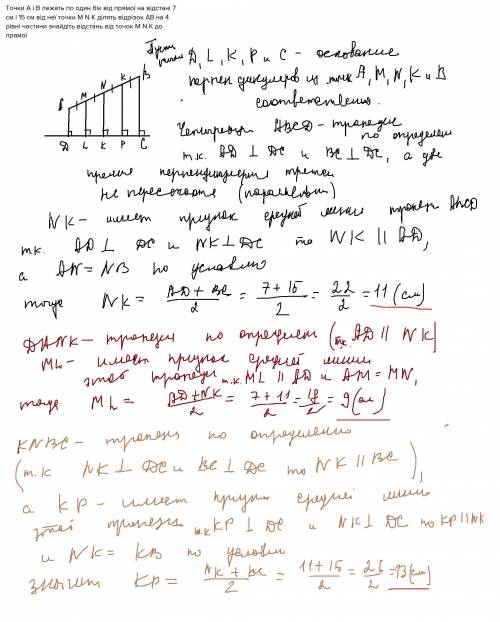 Точки А і В лежать по один бік від прямої на відстані 7
см і 15 см від неї точки M N K ділять відрізок АВ на 4
рівні частини знайдіть відстань від точок M N K до
прямої
Пусть точки D, L, K, P и C - основание
перпендикуляров из точек A, M, N, K и B
соответственно.
A M N K B
D L K P C
Четырехуг ABCD - трапеция
по определен
т.к. AD ⊥ DC и BC ⊥ DC, а две
прямые перпендикулярн третьей
не пересекаются (параллельны)
NK - имеет признак средней линии трапец ABCD
т.к. AD ⊥ DC и NK ⊥ DC то NK || AD,
а AN = NB по условию
тогда NK = AD + BC / 2 = 7 + 15 / 2 = 22 / 2 = 11 (см)
DANK - трапеция по определен (т.к. AD || NK)
ML - имеет признак средней линии
этой трапеци т.к. ML || AD и AM = MN,
тогда ML = AD + NK / 2 = 7 + 11 / 2 = 18 / 2 = 9 (см)
KNBC - трапеция по определению
(т.к NK ⊥ DC и BC ⊥ DC то NK || BC),
а KP - имеет признак средней линии
этой трапеции т.к KP ⊥ DC и NK ⊥ DC то KP || NK
и NK = KB по условию
значит KP = NK + BC / 2 = 11 + 15 / 2 = 26 / 2 = 13 (см)